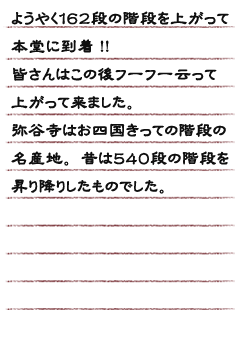 ようやく162段の階段を上がって
本堂に到着 !!
皆さんはこの後フーフー云って
上がって来ました。
弥谷寺はお四国きっての階段の
名産地。 昔は540段の階段を
昇り降りしたものでした。